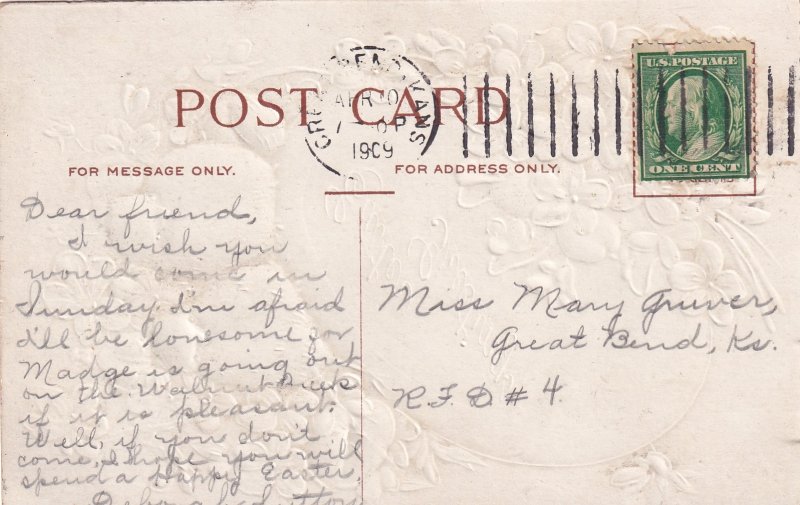 POST CARD
GREAT BEND, KANS
APR 10
1909
U.S. POSTAGE
ONE CENT
FOR MESSAGE ONLY.
FOR ADDRESS ONLY.
Dear friend,
I wish you
would come in
Sunday I'm afraid
I'll be lonesome for
Madge is going out
on the Walnut
if it is pleasant.
Well, if you don't
come, I hope you will
spend a Happy Easter.
Miss Mary Gruver,
Great Bend, Ks.
R.F.D. # 4